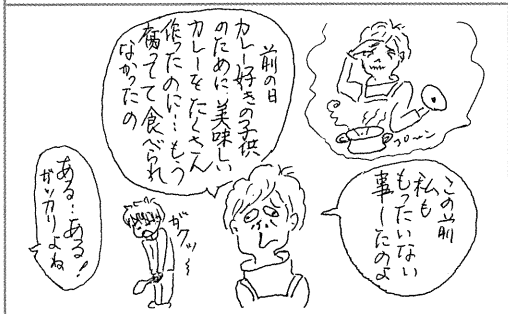 この前
私も
もったいない
事したのよ
プ〜ン
前の日
カレー好きの子供
のために美味しい
カレーをたくさん
作ったのに…もう
腐ってて食べられ
なかったの
ガクッ〜
ある…ある！
ガッカリよね